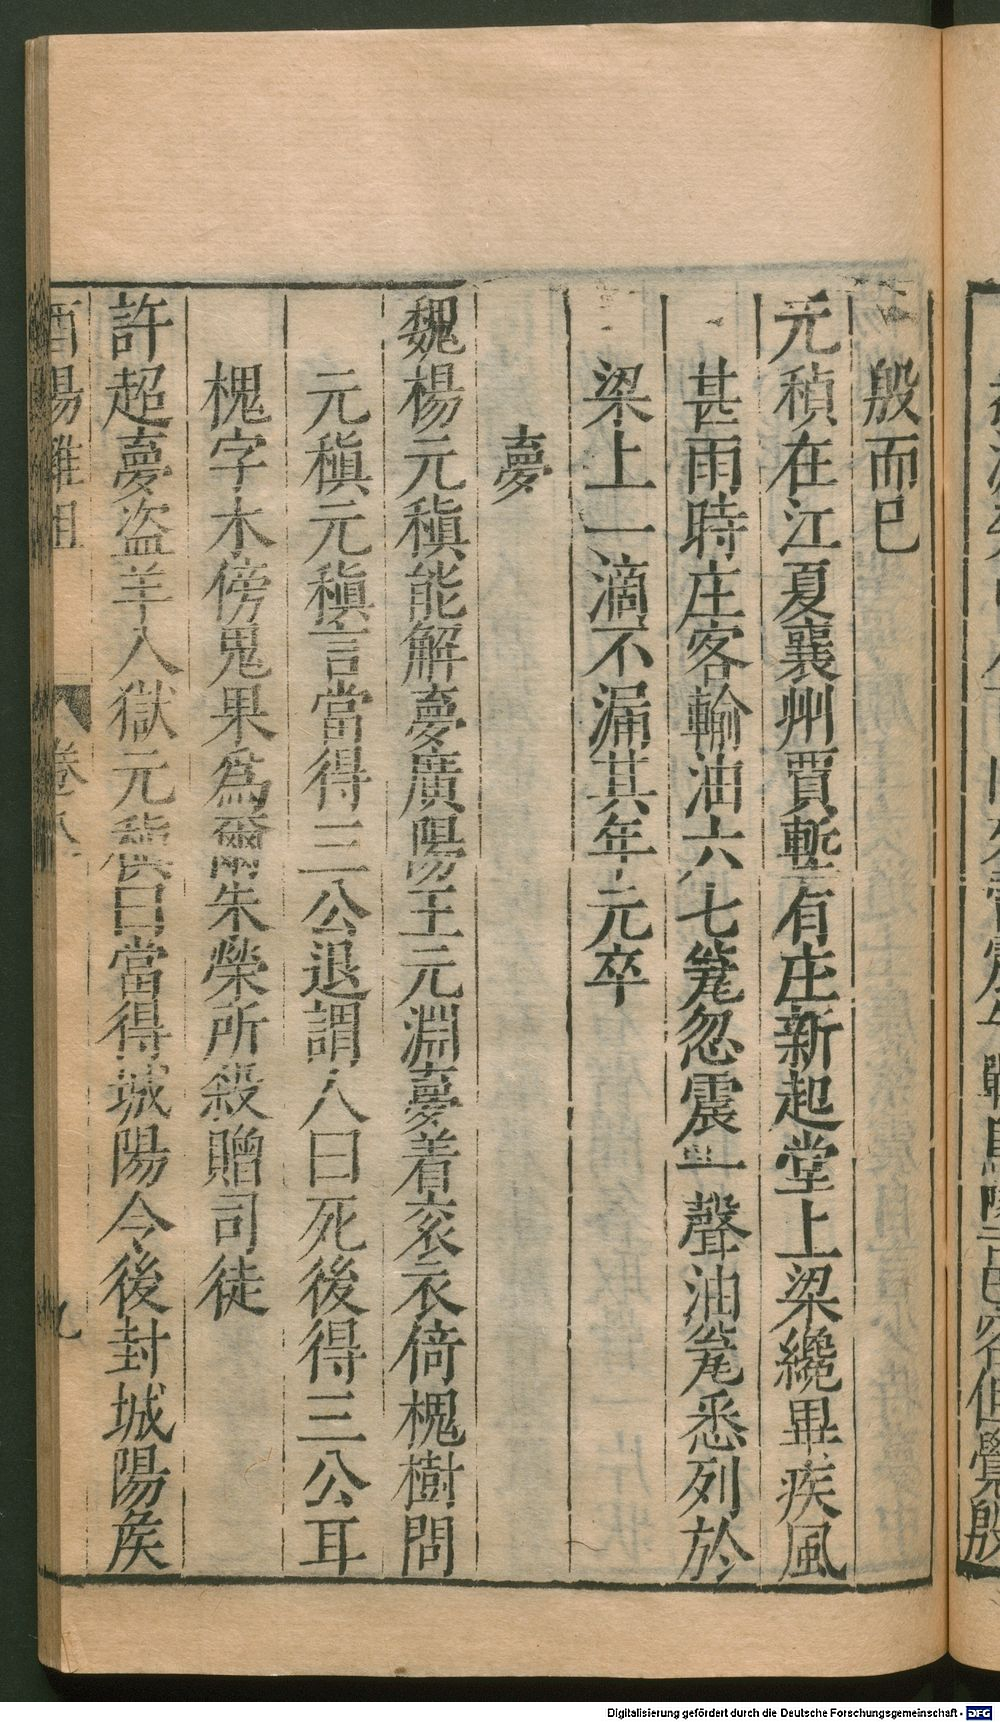 殷而已
元稹在江夏襄州賈塹有庄新起堂上梁纔畢疾風
甚雨時庄客輸油六七甕忽震一聲油甕悉列於
梁上一滴不漏其年元卒
夢
魏楊元稹能解夢廣陽王元淵夢着衮衣倚槐樹問
元稹元稹言當得三公退謂人曰死後得三公耳
槐字木傍鬼果爲爾朱榮所殺贈司徒
許超夢盜羊入獄元稹曰當得城陽令後封城陽侯
酉陽雜俎 卷八 九
Digitalisierung gefördert durch die Deutsche Forschungsgemeinschaft - DFG